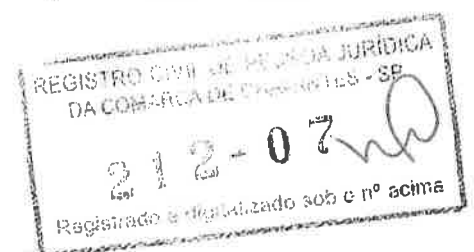 REGISTRO CIVIL DE PESSOA JURÍDICA
DA COMARCA DE - SP
212-07
Registrado e digitalizado sob o nº acima